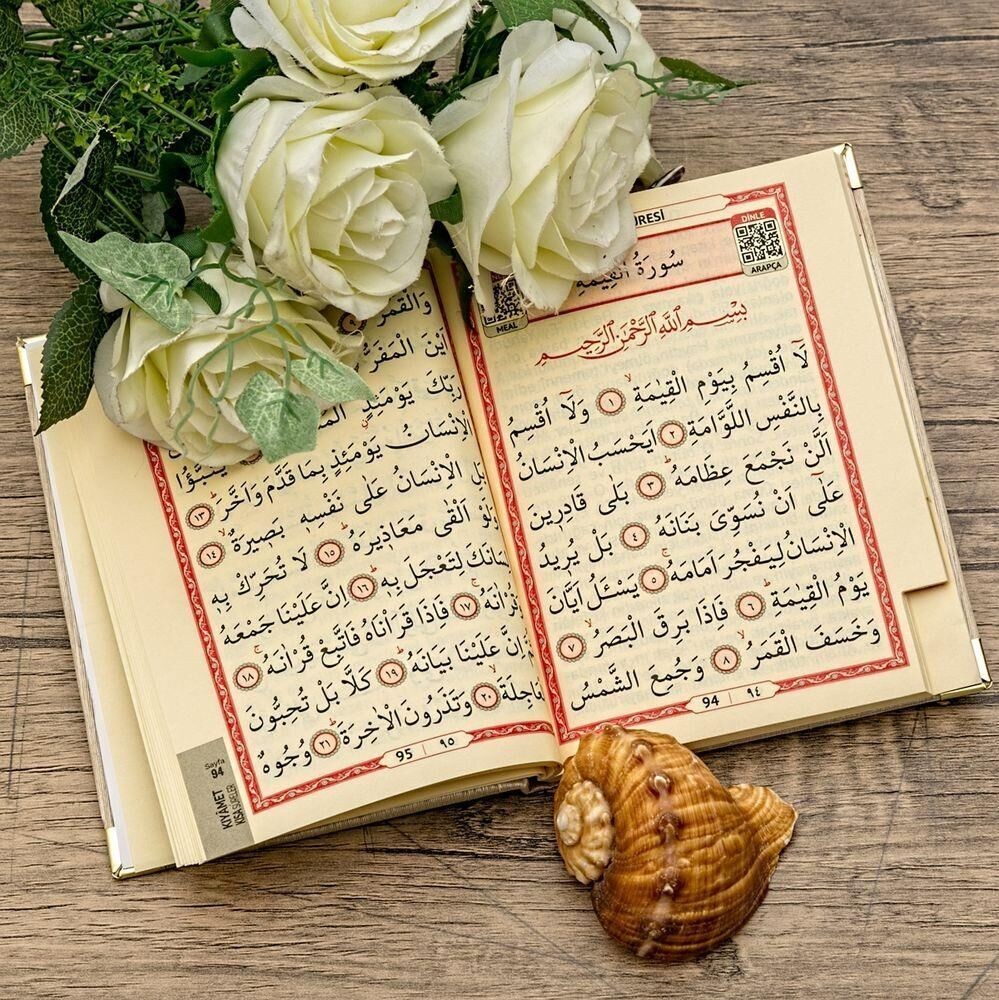 RESİ
DİNLE
ARAPÇA
MEAL
سُورَةُ الْقِيٰمَةِ
بِسْمِ اللّٰهِ الرَّحْمٰنِ الرَّح۪يمِ
لَٓا اُقْسِمُ بِيَوْمِ الْقِيٰمَةِۙ ﴿١﴾ وَلَٓا اُقْسِمُ
بِالنَّفْسِ اللَّوَّامَةِ ﴿٢﴾ اَيَحْسَبُ الْاِنْسَانُ
اَلَّنْ نَجْمَعَ عِظَامَهُۜ ﴿٣﴾ بَلٰى قَادِر۪ينَ
عَلٰٓى اَنْ نُسَوِّىَ بَنَانَهُ ﴿٤﴾ بَلْ يُر۪يدُ
الْاِنْسَانُ لِيَفْجُرَ اَمَامَهُۚ ﴿٥﴾ يَسْـَٔلُ اَيَّانَ
يَوْمُ الْقِيٰمَةِۜ ﴿٦﴾ فَاِذَا بَرِقَ الْبَصَرُۙ ﴿٧﴾
وَخَسَفَ الْقَمَرُۙ ﴿٨﴾ وَجُمِعَ الشَّمْسُ
94 | ٩٤
وَالْقَمَرُ
اَيْنَ الْمَفَرُّ
رَبِّكَ يَوْمَئِذٍ
الْاِنْسَانُ يَوْمَئِذٍ بِمَا قَدَّمَ وَاَخَّرَۜ ﴿١٣﴾
بَلِ الْاِنْسَانُ عَلٰى نَفْسِه۪ بَص۪يرَةٌۙ ﴿١٤﴾
وَلَوْ اَلْقٰى مَعَاذ۪يرَهُۜ ﴿١٥﴾ لَا تُحَرِّكْ بِه۪
لِسَانَكَ لِتَعْجَلَ بِه۪ۜ ﴿١٦﴾ اِنَّ عَلَيْنَا جَمْعَهُ
وَقُرْاٰنَهُۚ ﴿١٧﴾ فَاِذَا قَرَاْنَاهُ فَاتَّبِعْ قُرْاٰنَهُۚ ﴿١٨﴾
ثُمَّ اِنَّ عَلَيْنَا بَيَانَهُۜ ﴿١٩﴾ كَلَّا بَلْ تُحِبُّونَ
الْعَاجِلَةَۙ ﴿٢٠﴾ وَتَذَرُونَ الْاٰخِرَةَۜ ﴿٢١﴾ وُجُوهٌ
95 | ٩٥
Sayfa
94
KIYÂMET
KISA SURELER